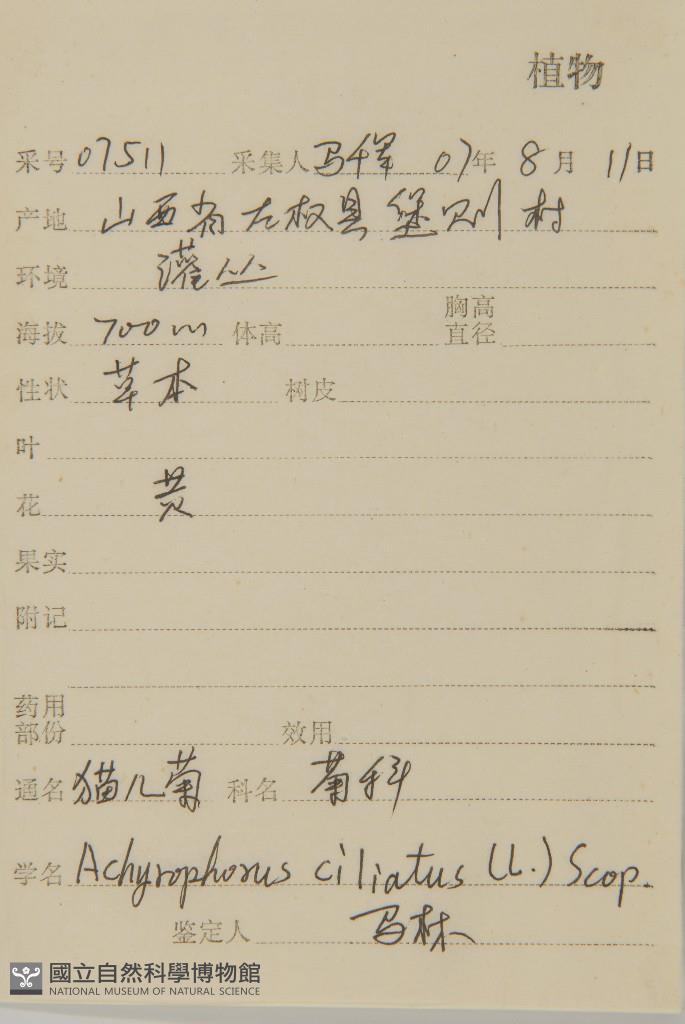 植物
采号 07511 采集人 马千里 07年 8月 11日
产地 山西省左权县堡则村
环境 灌丛
海拔 700m 体高 胸高直径
性状 草本 树皮
叶
花 黄
果实
附记
药用部份 效用
通名 猫儿菊 科名 菊科
学名 Achyrophorus ciliatus (L.) Scop.
鉴定人 马林
國立自然科學博物館
NATIONAL MUSEUM OF NATURAL SCIENCE